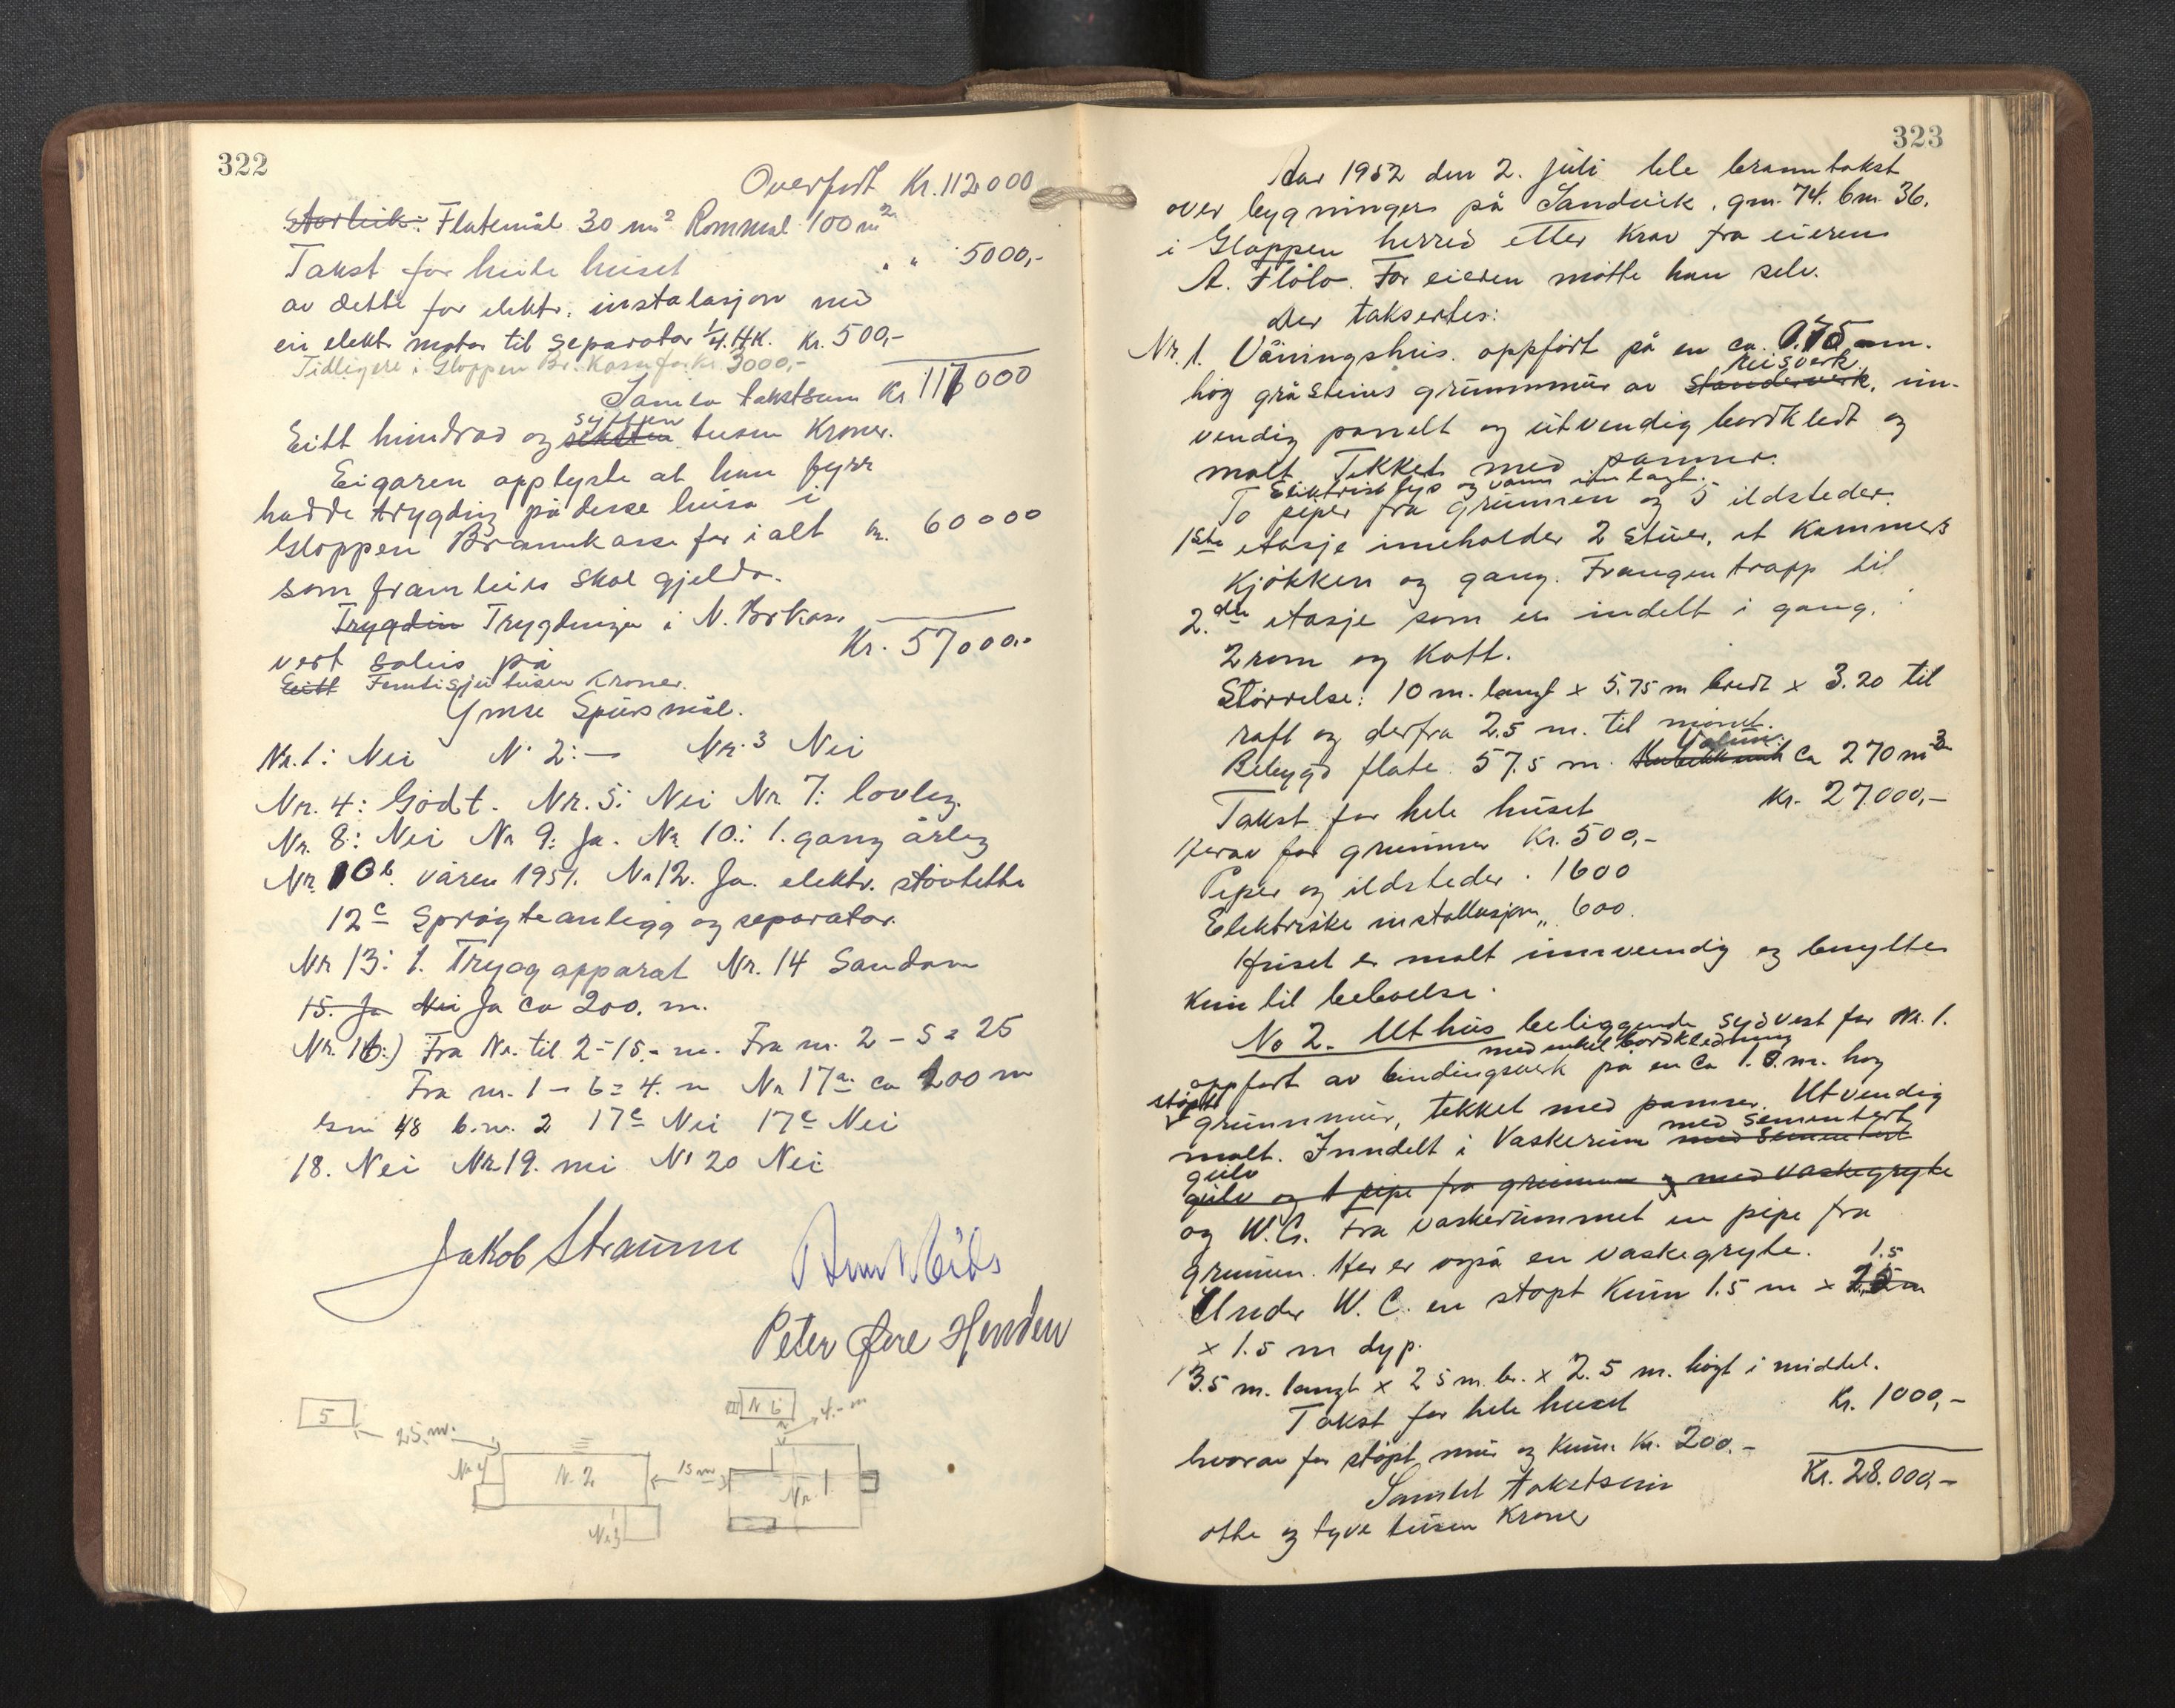 322
Overført Kr. 112000
Storleik: Flatemål 30 m² Rommål 100 m²
Takst for heile huset " " 5000,-
av dette for elektr. instalasjon med
ein elektr motor til separator 1/4 HK. Kr. 500,-
Tidligere i Gloppen Br. Kasse for kr 3000,-
Samla takstsum Kr 117000
syttten
Eitt hundrad og seksten tusen Kroner.
Eigaren opplyste at han fyrr
hadde trygding på desse husa i
Gloppen Brannkasse for i alt kr. 60000
som framleis skal gjelda.
Trygdin Trygdinga i N. Brkass
Kr. 57000.-
vert soleis på
Eitt Femtisju tusen Kroner.
Ymse Spursmål.
Nr. 1: Nei N. 2: — Nr. 3 Nei
Nr. 4: Godt. Nr. 5: Nei Nr 7: lovleg.
Nr. 8: Nei Nr 9: Ja. Nr 10: 1. gang årleg
Nr. 10b. våren 1951. Nr 12. Ja. elektr. støvtette
12c Sprøyteanlegg og separator.
Nr 13: 1. Trygg apparat Nr. 14 Sandane
15. Ja Nei Ja ca 200. m.
Nr. 16:) Fra Nr. til 2 = 15.- m. Fra nr. 2 - 5 = 25
Fra nr. 1 - 6 = 4. m Nr 17a. ca 200 m
Gnr 48 b.nr. 2 17c Nei 17c Nei
18. Nei Nr 19. nei Nr 20 Nei
Jakob Straume
Peter Øere Henden
5
25 m.
Nr 4
N. 2
Nr 3
15 m
N 6
4.- m
Nr. 1
323
Aar 1952 den 2. juli ble branntakst
over bygninger på Sandvik. gnr. 74. bnr. 36.
i Gloppen herred etter krav fra eieren
A. Fløto. For eieren møtte han selv.
der taksertes:
Nr. 1. Våningshus. oppført på en ca. 0.75 m.
reisverk
høg gråsteins grunnmur av standerverk, inn-
vendig panelt og utvendig bordkledt og
malt. Tekket med panner.
Elektrisk lys og vann innlagt.
To piper fra grunnen og 5 ildsteder.
1ste etasje inneholder 2 stuer, et kammers
kjøkken og gang. Fra gangen trapp til
2.den etasje som er indelt i gang,
2 rom og kott.
Størrelse: 10 m. langt x 5.75 m bredt x 3.20 til
raft og derfra 2.5 m. til mønet.
Volum.
Bebygd flate. 57.5 m. Kubikkmål Ca 270 m3
Takst for hele huset Kr. 27.000,-
Herav for grunnmur Kr. 500,-
Piper og ildsteder " 1600
Elektriske installasjon " 600.
Huset er malt innvendig og benyttes
kun til beboelse.
No 2. Uthus beliggende sydvest for Nr. 1.
med enkel bordkledning
oppført av bindingsverk på en ca 1.0. m. høg
støpt
grunnmur, tekket med panner. Utvendig
med sementert
malt. Inndelt i Vaskerum med sementert
gulv
gulv og 1 pipe fra grunnen og med vaskegryte
og W.C. Fra vaskerummet en pipe fra
grunnen. Her er også en vaskegryte.
1.5
Under W.C. en støpt kum 1.5 m x 2.5 m
x 1.5 m dyp.
3.5 m. langt x 2 5 m. br. x 2.5 m. høgt i middel.
Takst for hele huset Kr. 1000,-
hvorav for støpt mur og kum. Kr. 200.-
Samlet takstsum Kr. 28.000,-
otte og tyve tusen Kroner